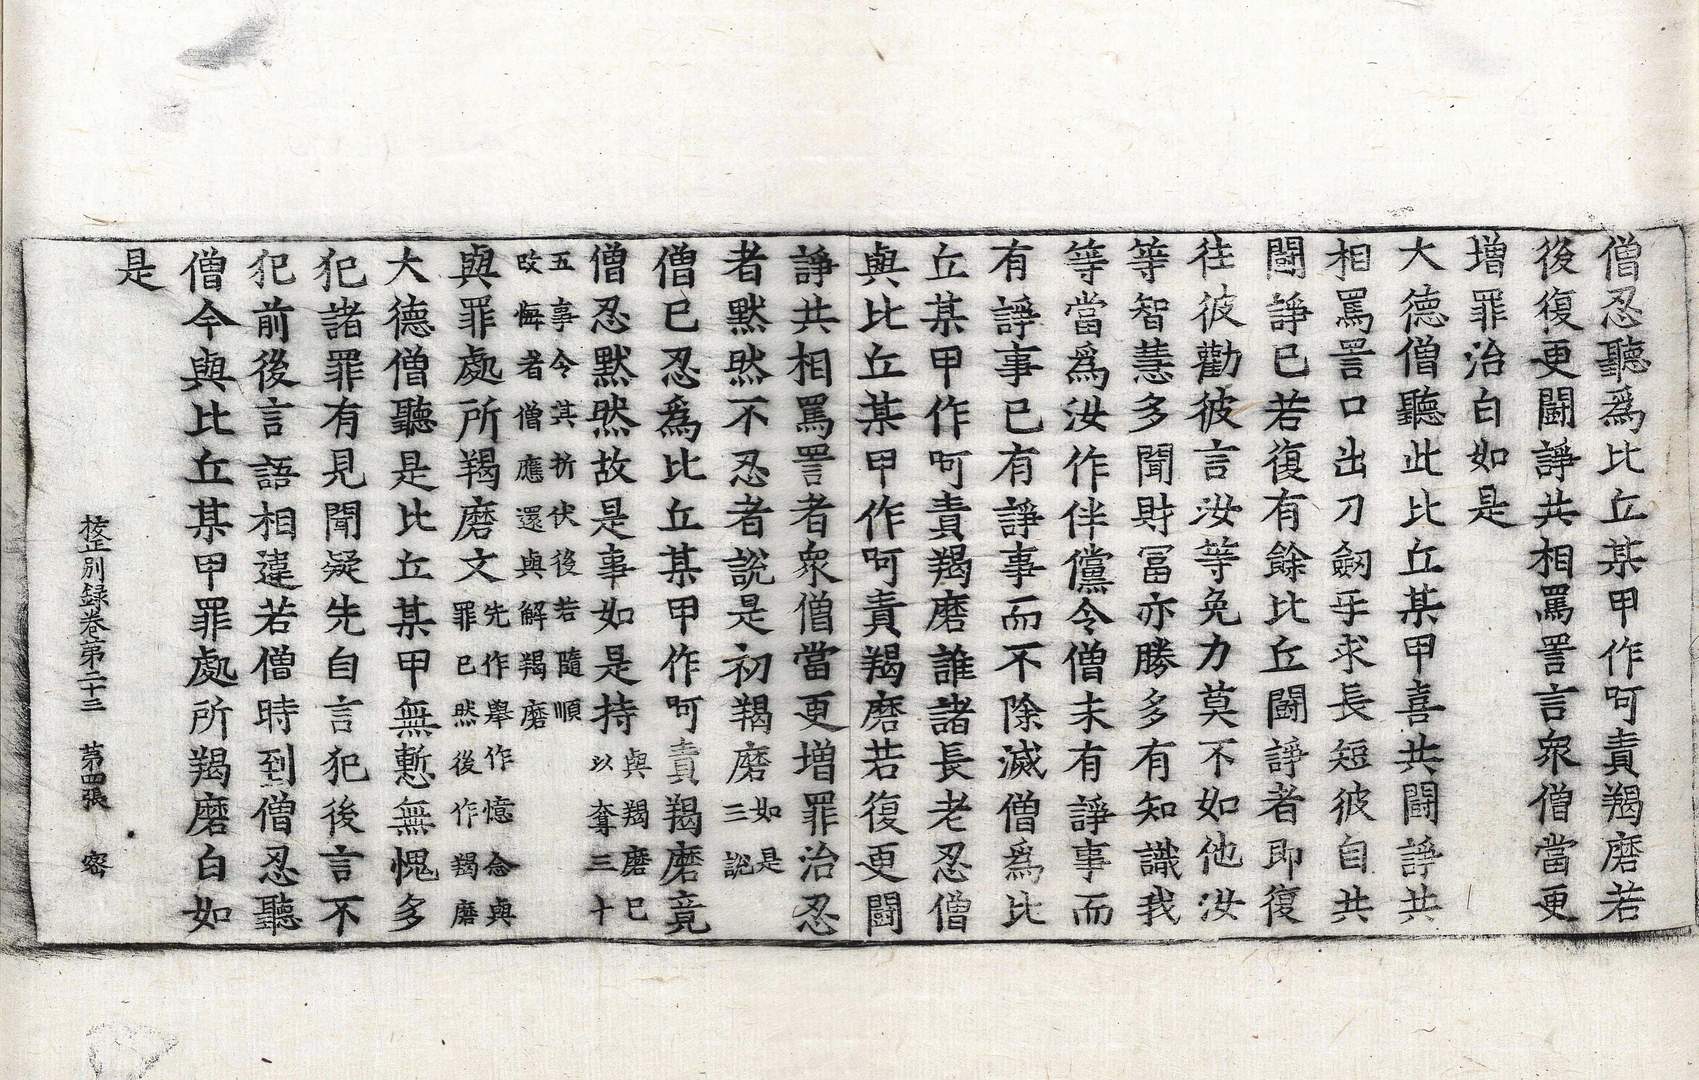 僧忍聽爲比丘某甲作呵責羯磨若
後復更鬪諍共相罵詈言衆僧當更
增罪治白如是
大德僧聽此比丘某甲喜共鬪諍共
相罵詈口出刀劒手求長短彼自共
鬪諍已若復有餘比丘鬪諍者即復
往彼勸彼言汝等免力莫不如他汝
等智慧多聞財冨亦勝多有知識我
等當爲汝作伴儻令僧未有諍事而
有諍事已有諍事而不除滅僧爲比
丘某甲作呵責羯磨誰諸長老忍僧
與比丘某甲作呵責羯磨若復更鬪
諍共相罵詈者衆僧當更增罪治忍
者默然不忍者說是初羯磨如是三說
僧已忍爲比丘某甲作呵責羯磨竟
僧忍默然故是事如是持與羯磨已以奪三十
五事令其折伏後若隨順改悔者僧應還與解羯磨
與罪處所羯磨文先作舉作憶念與罪已然後作羯磨
大德僧聽是比丘某甲無慙無愧多
犯諸罪有見聞疑先自言犯後言不
犯前後言語相違若僧時到僧忍聽
僧今與比丘某甲罪處所羯磨白如
是
校正別録卷第二十三　第四張　密